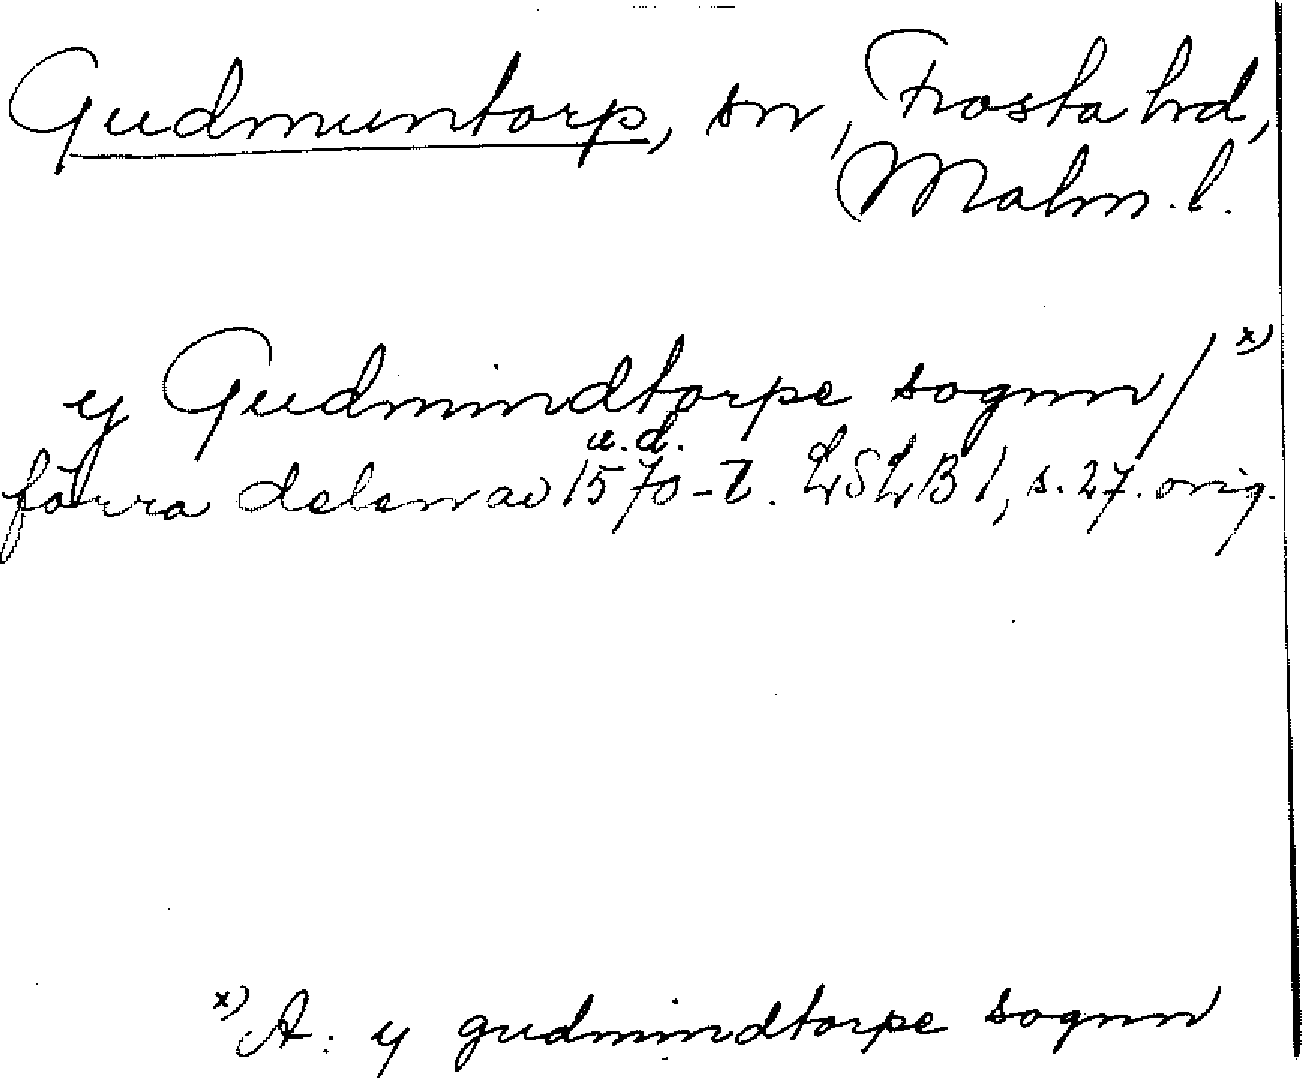 Gudmuntorp, sn, Frosta hd,
Malm. l.
y Gudmindtorpe sognn / x)
u. d.
förra delen av 1570-t. LSLB 1, s. 27. orig.
x) A: y gudmindtorpe sognn